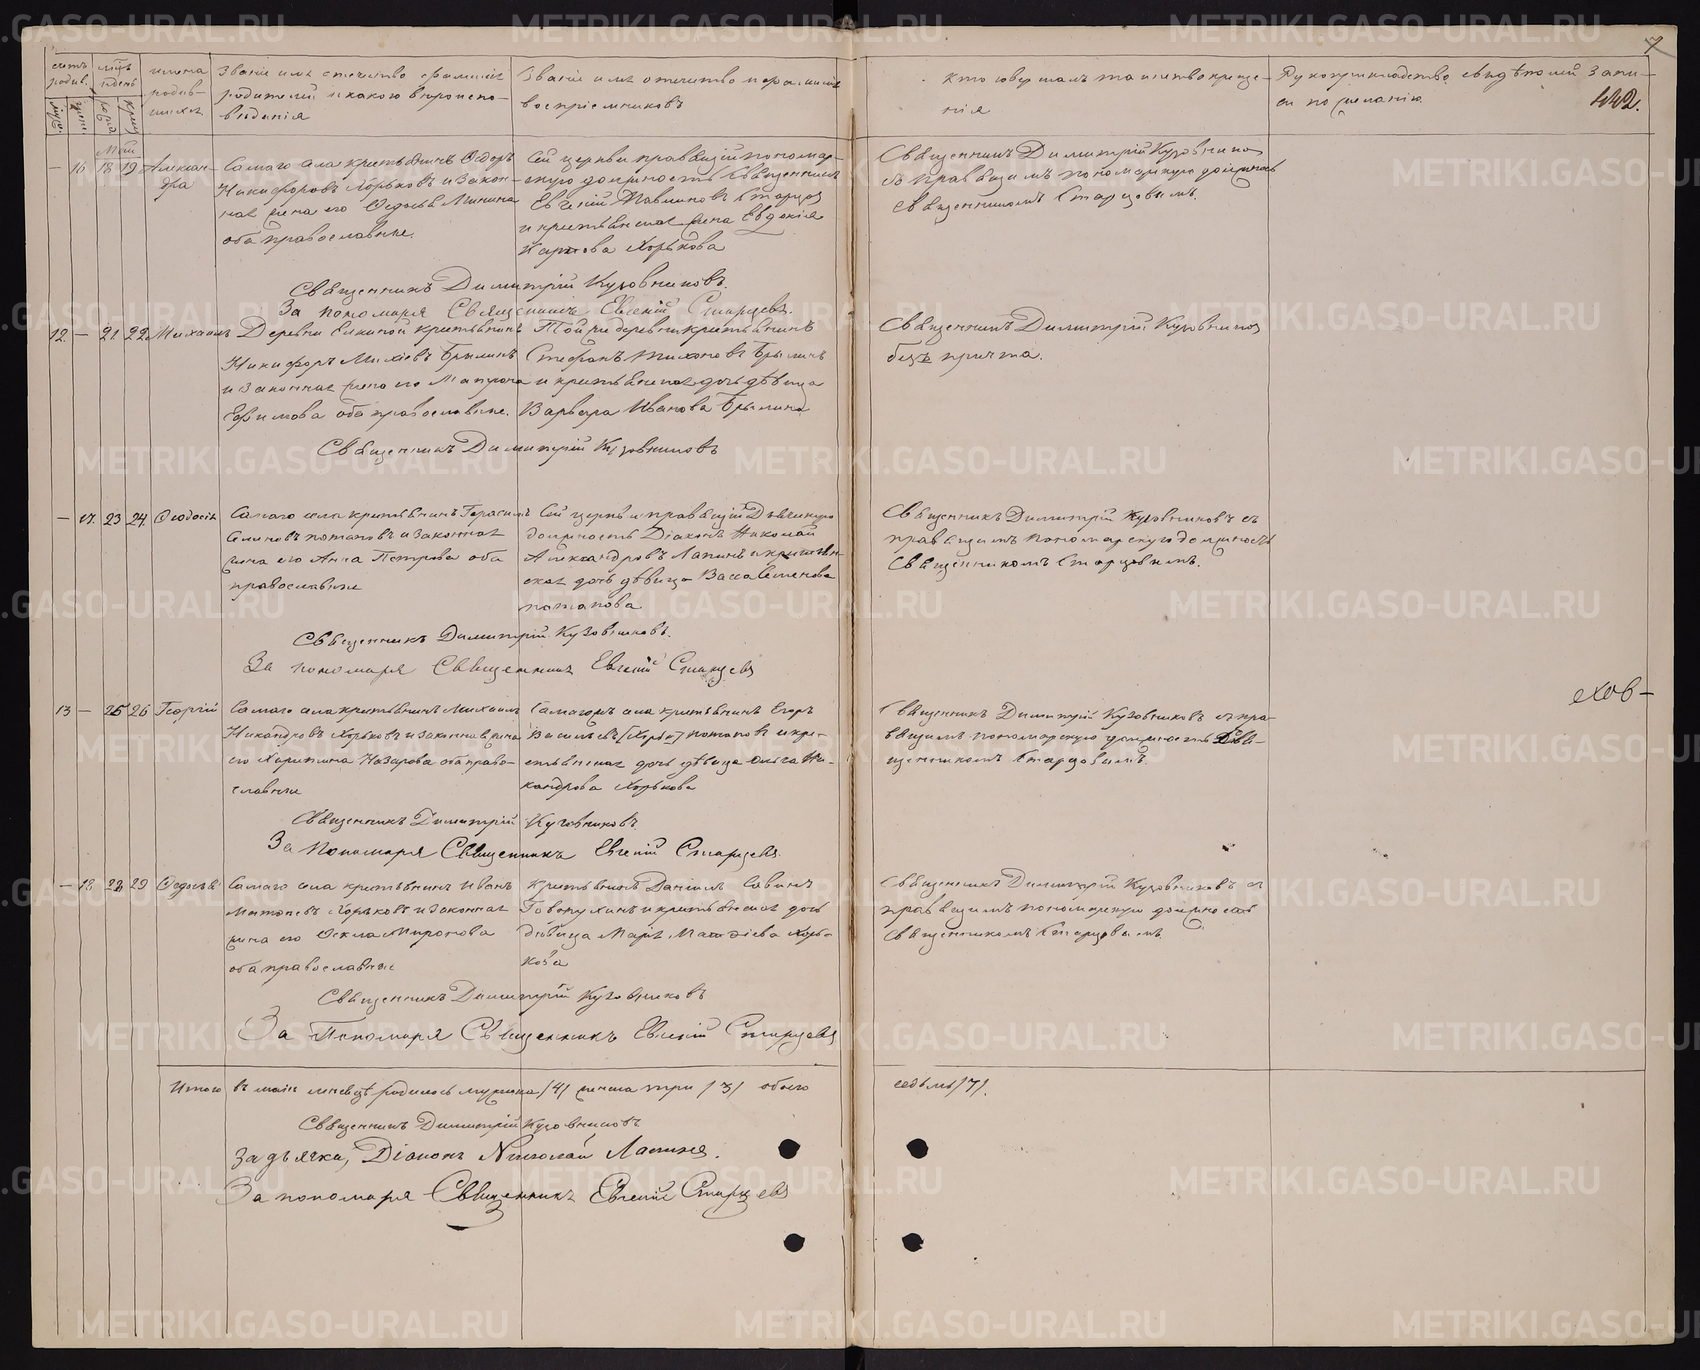 7
442.
счетъ родив. | мѣц. и день | имена родив-шихся | Званіе имя отчество фамилія
родителей и какого вѣроиспо-
вѣданія
Званіе имя отчество и фамилія
воспріемниковъ
Кто совершалъ таинство креще-
нія
Рукоприкладство свидѣтелей запи-
си по желанію
Май
— 16 18 19 Алексан-
дра
Самаго села крестьянинъ Ѳедоръ
Никифоровъ Хорьковъ и закон-
ная жена его Ѳедосья Минина
оба православные.
Сей церкви правящій пономар-
скую должность Священникъ
Евгеній Павлиновъ Старцев
и крестьянская жена Евдокія
Карпова Хорькова
Священникъ Димитрій Кузовников
съ правящимъ пономарскую должность
священникомъ Старцовымъ.
Священникъ Димитрій Кузовниковъ.
За пономаря Священникъ Евгеній Старцевъ.
12. — 21. 22 Михаилъ
Деревни крестьянинъ
Никифоръ Брылинъ
и законная жена его Матрона
Ефимова оба православные.
Той же деревни крестьянинъ
Стефанъ Тихоновъ Брылинъ
и крестьянская дочь дѣвица
Варвара Иванова Брылина
Священникъ Димитрій Кузовников
безъ причта.
Священникъ Димитрій Кузовниковъ
— 17. 23 24. Ѳеодосія
Самаго села крестьянинъ Герасимъ
Семеновъ Потаповъ и законная
жена его Анна Петрова оба
православные
Сей церкви правящій Дьяческую
должность Діаконъ Николай
Александровъ Лапинъ и крестьян-
ская дочь дѣвица Васса Семенова
Потапова
Священникъ Димитрій Кузовниковъ съ
правящимъ пономарскую должность
Священникомъ Старцовымъ.
Священникъ Димитрій Кузовниковъ.
За пономаря Священникъ Евгеній Старцевъ
13 — 25 26 Георгій
Самаго села крестьянинъ Михаилъ
Никандровъ Хорьковъ и законная жена
его Харитина Назарова оба право-
славные
Самагожъ села крестьянинъ Егоръ
Васильевъ [Хорьк] Потаповъ и кре-
стьянская дочь дѣвица Ольга Ни-
кандрова Хорькова
Священникъ Димитрій Кузовниковъ съ пра-
вящимъ пономарскую должность Свя-
щенникомъ Старцовымъ.
Священникъ Димитрій Кузовниковъ
За Пономаря Священникъ Евгеній Старцевъ.
— 18 28 29 Ѳедосья
Самаго села крестьянинъ Иванъ
Матѳіевъ Хорьковъ и законная
жена его Ѳекла Миронова
оба православные
Крестьянинъ Даніилъ Савинъ
Говорухинъ и крестьянская дочь
дѣвица Марія Матѳіева Хорь-
кова
Священникъ Димитрій Кузовниковъ съ
правящимъ пономарскую должность
Священникомъ Старцовымъ
Священникъ Димитрій Кузовниковъ
За Пономаря Священникъ Евгеній Старцевъ
Итого въ маѣ мѣсяцѣ родилось мужска /4/ женска три /3/ обоего
седьмь /7/.
Священникъ Димитрій Кузовниковъ
За дьячка, Діаконъ Николай Лапинъ.
За пономаря Священникъ Евгеній Старцевъ
METRIKI.GASO-URAL.RU